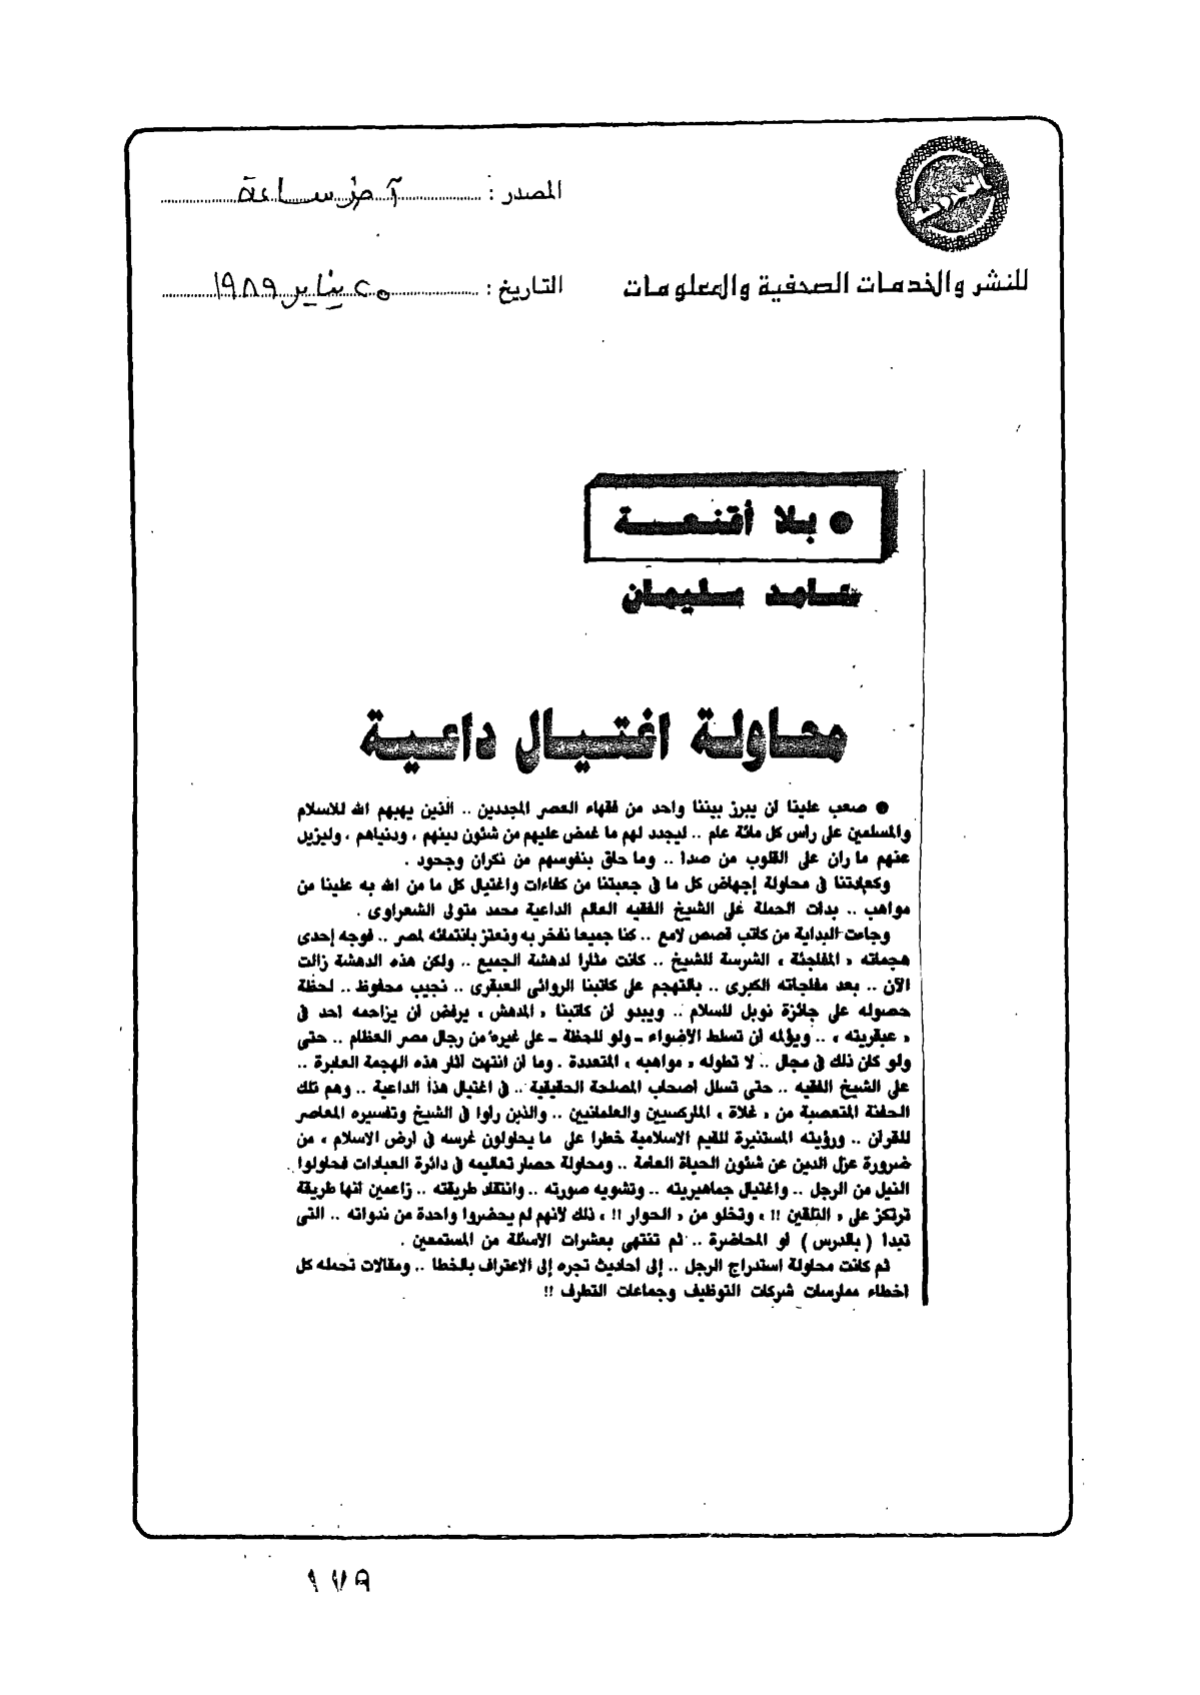 المصدر : آخر ساعة
للنشر والخدمات الصحفية والمعلومات
التاريخ : ٢٥ يناير ١٩٨٩
● بلا أقنعة
حامد سليمان
محاولة اغتيال داعية
● صعب علينا ان يبرز بيننا واحد من فقهاء العصر المجددين .. الذين يهبهم الله للاسلام
والمسلمين على راس كل مائة عام .. ليجدد لهم ما غمض عليهم من شئون دينهم ، ودنياهم ، وليزيل
عنهم ما ران على القلوب من صدا .. وما حاق بنفوسهم من نكران وجحود .
وكعادتنا فى محاولة إجهاض كل ما فى جعبتنا من كفاءات واغتيال كل ما من الله به علينا من
مواهب .. بدات الحملة على الشيخ الفقيه العالم الداعية محمد متولى الشعراوى .
وجاءت البداية من كاتب قصص لامع .. كنا جميعا نفخر به ونعتز بانتمائه لمصر .. فوجه إحدى
هجماته « المفاجئة ، الشرسة للشيخ .. كانت مثارا لدهشة الجميع .. ولكن هذه الدهشة زالت
الآن .. بعد مفاجاته الكبرى .. بالتهجم على كاتبنا الروائى العبقرى .. نجيب محفوظ .. لحظة
حصوله على جائزة نوبل للسلام .. ويبدو ان كاتبنا « المدهش ، يرفض ان يزاحمه احد فى
« عبقريته ، .. ويؤلمه ان تسلط الأضواء ـ ولو للحظة ـ على غيره من رجال مصر العظام .. حتى
ولو كان ذلك فى مجال .. لا تطوله « مواهبه ، المتعددة . وما ان انتهت اثار هذه الهجمة العابرة ..
على الشيخ الفقيه .. حتى تسلل اصحاب المصلحة الحقيقية .. فى اغتيال هذا الداعية .. وهم تلك
الحفنة المتعصبة من « غلاة ، الماركسيين والعلمانيين .. والذين راوا فى الشيخ وتفسيره المعاصر
للقرآن .. ورؤيته المستنيرة للقيم الاسلامية خطرا على ما يحاولون غرسه فى ارض الاسلام ، من
ضرورة عزل الدين عن شئون الحياة العامة .. ومحاولة حصار تعاليمه فى دائرة العبادات فحاولوا
النيل من الرجل .. واغتيال جماهيريته .. وتشويه صورته .. وانتقاد طريقته .. زاعمين انها طريقة
ترتكز على « التلقين !! ، وتخلو من « الحوار !! ، ذلك لأنهم لم يحضروا واحدة من ندواته .. التى
تبدا ( بالدرس ) او المحاضرة .. ثم تنتهى بعشرات الاسئلة من المستمعين .
ثم كانت محاولة استدراج الرجل .. إلى احاديث تجره إلى الاعتراف بالخطا .. ومقالات تحمله كل
اخطاء ممارسات شركات التوظيف وجماعات التطرف !!
١٧٩